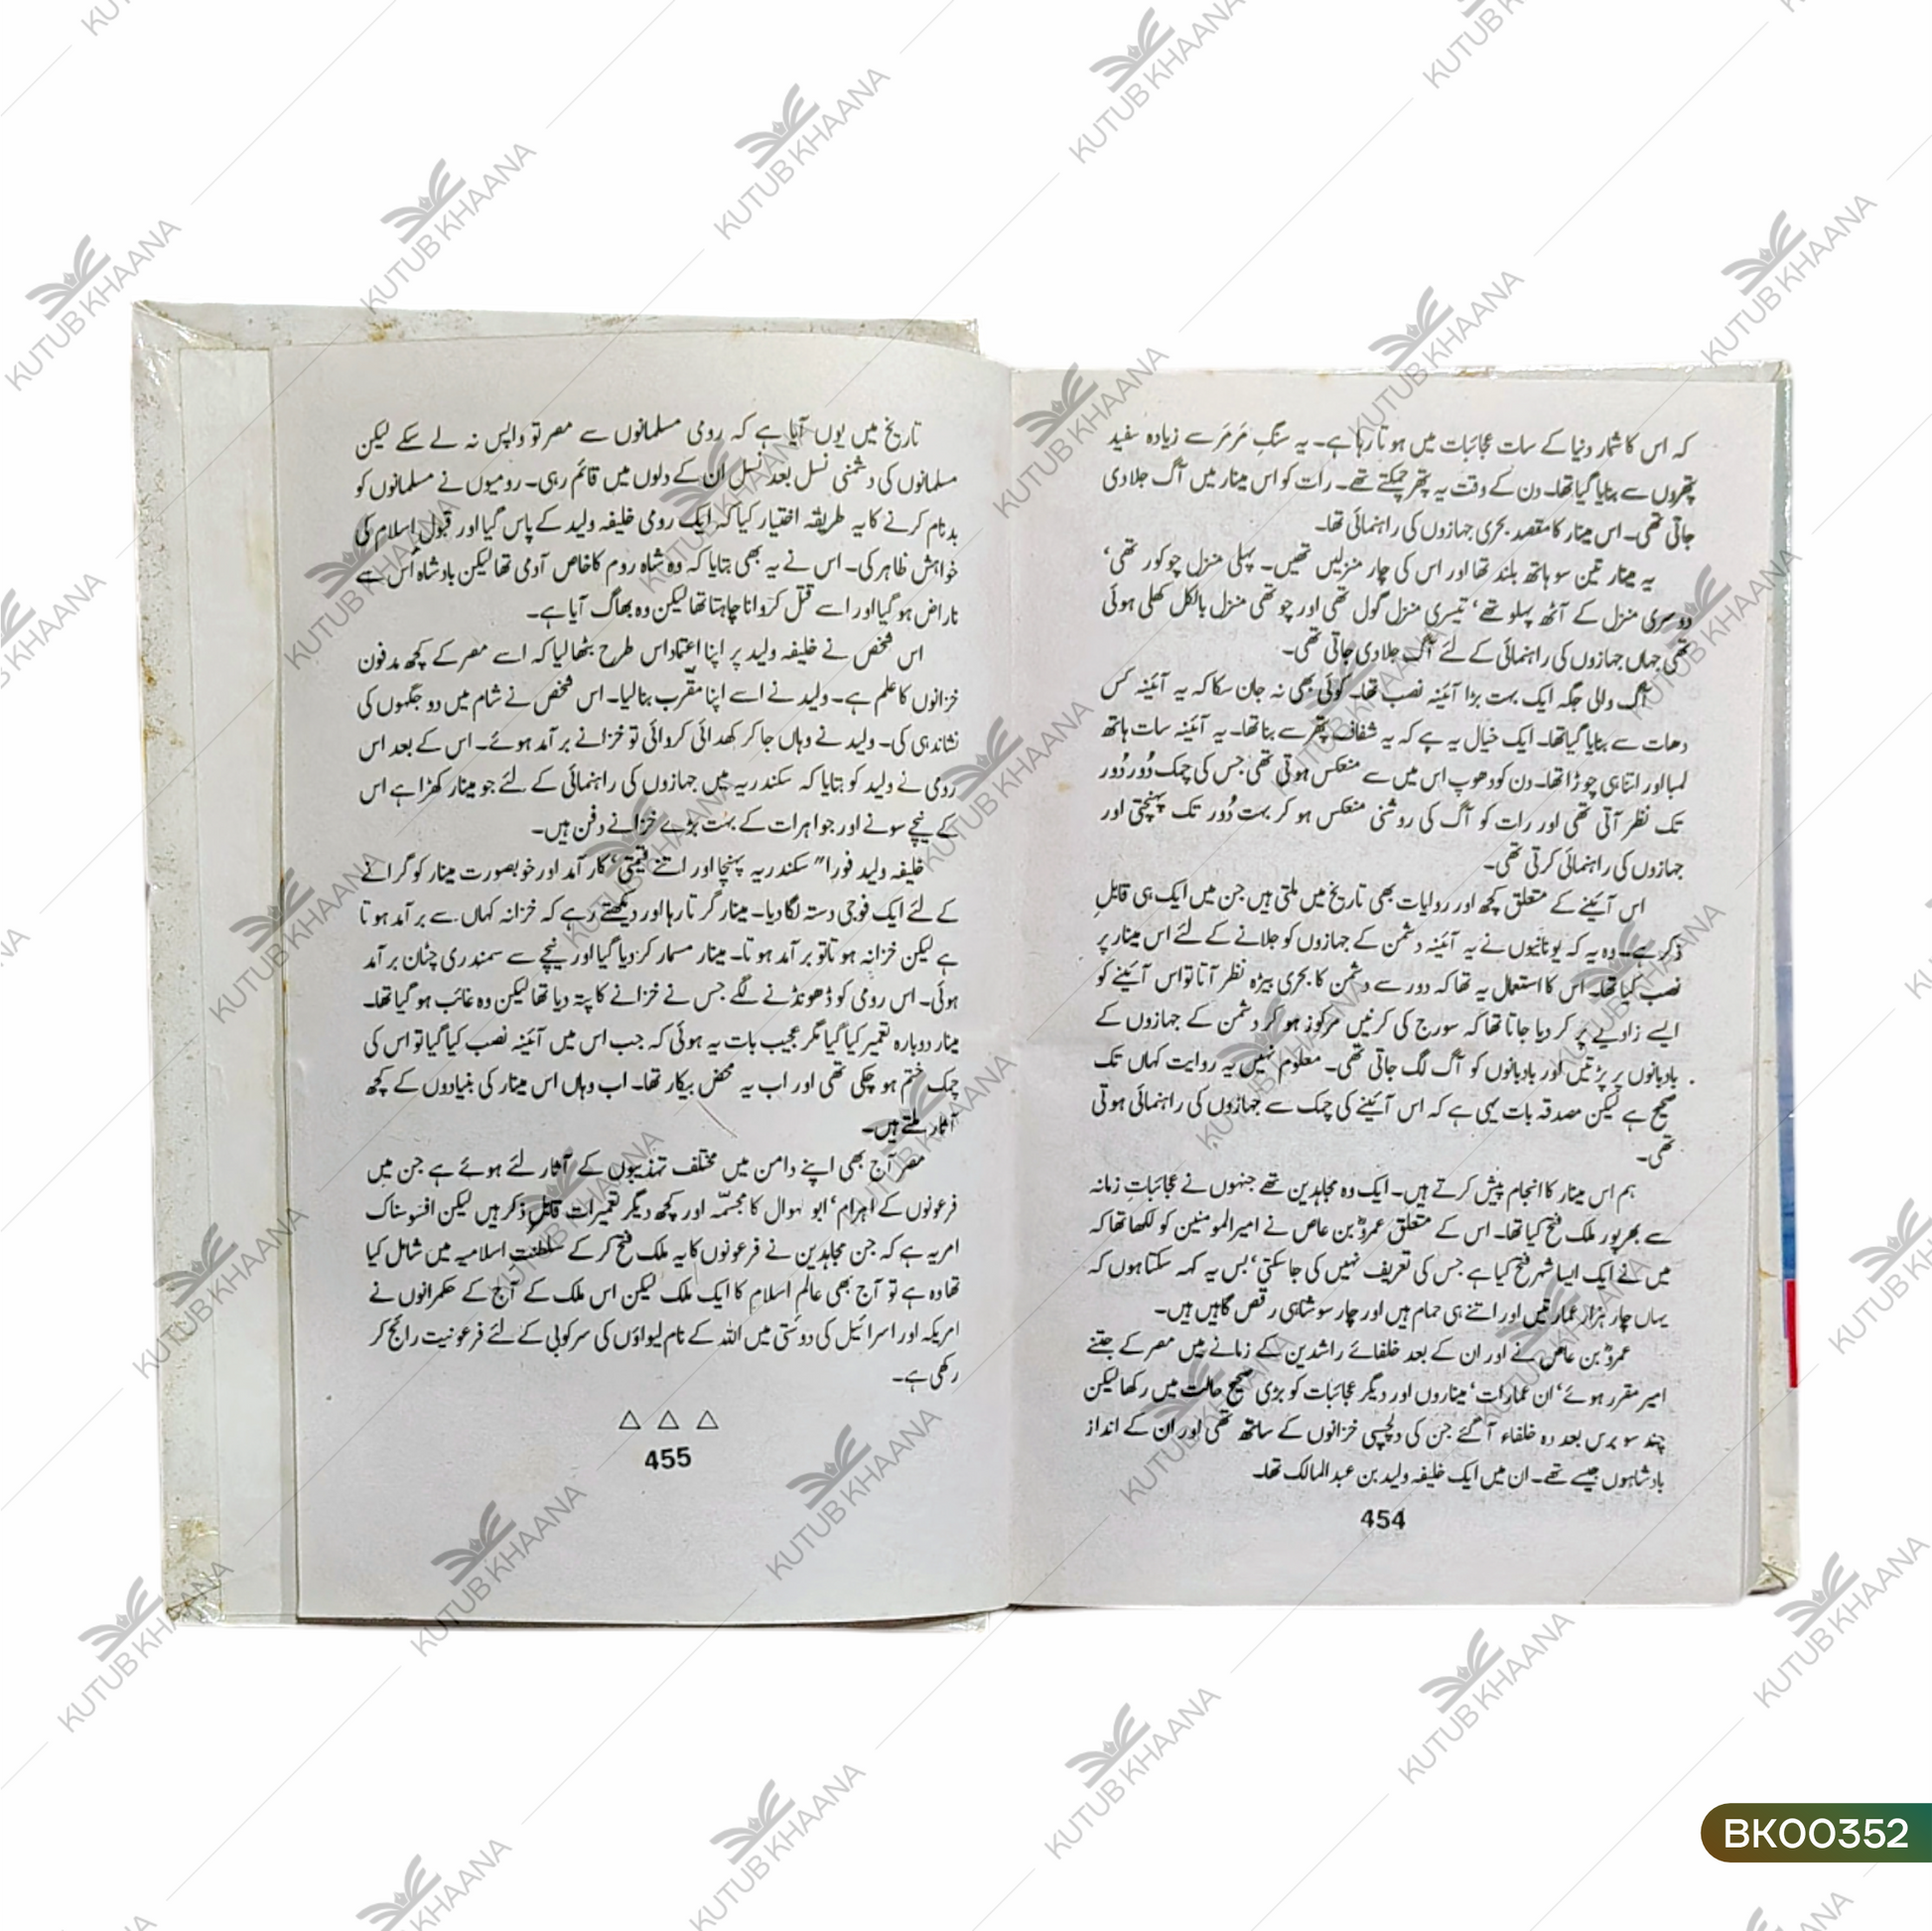 کہ اس کا شمار دنیا کے سات عجائبات میں ہوتا رہا ہے۔ یہ سنگِ مَرمَر سے زیادہ سفید
پتھروں سے بنایا گیا تھا۔ دن کے وقت یہ پتھر چمکتے تھے۔ رات کو اس مینار میں آگ جلا دی
جاتی تھی۔ اس مینار کا مقصد بحری جہازوں کی راہنمائی تھا۔
یہ مینار تین سو ہاتھ بلند تھا اور اس کی چار منزلیں تھیں۔ پہلی منزل چوکور تھی‘
دوسری منزل کے آٹھ پہلو تھے‘ تیسری منزل گول تھی اور چوتھی منزل بالکل کھلی ہوئی
تھی جہاں جہازوں کی راہنمائی کے لئے آگ جلا دی جاتی تھی۔
آگ والی جگہ ایک بہت بڑا آئینہ نصب تھا۔ کوئی بھی نہ جان سکا کہ یہ آئینہ کس
دھات سے بنایا گیا تھا۔ ایک خیال یہ ہے کہ یہ شفاف پتھر سے بنا تھا۔ یہ آئینہ سات ہاتھ
لمبا اور اتنا ہی چوڑا تھا۔ دن کو دھوپ اس میں سے منعکس ہوتی تھی جس کی چمک دُور دُور
تک نظر آتی تھی اور رات کو آگ کی روشنی منعکس ہو کر بہت دُور تک پہنچتی اور
جہازوں کی راہنمائی کرتی تھی۔
اس آئینے کے متعلق کچھ اور روایات بھی تاریخ میں ملتی ہیں جن میں ایک ہی قابلِ
ذکر ہے۔ وہ یہ کہ یونانیوں نے یہ آئینہ دشمن کے جہازوں کو جلانے کے لئے اس مینار پر
نصب کیا تھا۔ اس کا استعمال یہ تھا کہ دور سے دشمن کا بحری بیڑہ نظر آتا تو اس آئینے کو
ایسے زاویے پر کر دیا جاتا تھا کہ سورج کی کرنیں مرکوز ہو کر دشمن کے جہازوں کے
بادبانوں پر پڑتیں اور بادبانوں کو آگ لگ جاتی تھی۔ معلوم نہیں یہ روایت کہاں تک
صحیح ہے لیکن مصدقہ بات یہی ہے کہ اس آئینے کی چمک سے جہازوں کی راہنمائی ہوتی
تھی۔
ہم اس مینار کا انجام پیش کرتے ہیں۔ ایک وہ مجاہدین تھے جنہوں نے عجائباتِ زمانہ
سے بھرپور ملک فتح کیا تھا۔ اس کے متعلق عمروؓ بن عاص نے امیرالمومنین کو لکھا تھا کہ
میں نے ایک ایسا شہر فتح کیا ہے جس کی تعریف نہیں کی جا سکتی‘ بس یہ کہہ سکتا ہوں کہ
یہاں چار ہزار عمارتیں اور اتنے ہی حمام ہیں اور چار سو شاہی رقص گاہیں ہیں۔
عمروؓ بن عاص نے اور ان کے بعد خلفائے راشدین کے زمانے میں مصر کے جتنے
امیر مقرر ہوئے‘ ان عمارات‘ میناروں اور دیگر عجائبات کو بڑی صحیح حالت میں رکھا لیکن
چند سو برس بعد وہ خلفاء آ گئے جن کی دلچسپی خزانوں کے ساتھ تھی اور ان کے انداز
بادشاہوں جیسے تھے۔ ان میں ایک خلیفہ ولید بن عبدالمالک تھا۔
454
تاریخ میں یوں آیا ہے کہ رومی مسلمانوں سے مصر تو واپس نہ لے سکے لیکن
مسلمانوں کی دشمنی نسل بعد نسل ان کے دلوں میں قائم رہی۔ رومیوں نے مسلمانوں کو
بدنام کرنے کا یہ طریقہ اختیار کیا کہ ایک رومی خلیفہ ولید کے پاس گیا اور قبول اسلام کی
خواہش ظاہر کی۔ اس نے یہ بھی بتایا کہ وہ شاہ روم کا خاص آدمی تھا لیکن بادشاہ اُس سے
ناراض ہو گیا اور اسے قتل کروانا چاہتا تھا لیکن وہ بھاگ آیا ہے۔
اس شخص نے خلیفہ ولید پر اپنا اعتماد اس طرح بٹھا لیا کہ اسے مصر کے کچھ مدفون
خزانوں کا علم ہے۔ ولید نے اسے اپنا مقرب بنا لیا۔ اس شخص نے شام میں دو جگہوں کی
نشاندہی کی۔ ولید نے وہاں جا کر کھدائی کروائی تو خزانے برآمد ہوئے۔ اس کے بعد اس
رومی نے ولید کو بتایا کہ سکندریہ میں جہازوں کی راہنمائی کے لئے جو مینار کھڑا ہے اس
کے نیچے سونے اور جواہرات کے بہت بڑے خزانے دفن ہیں۔
خلیفہ ولید فورا" سکندریہ پہنچا اور اتنے قیمتی‘ کارآمد اور خوبصورت مینار کو گرانے
کے لئے ایک فوجی دستہ لگا دیا۔ مینار گرتا رہا اور دیکھتے رہے کہ خزانہ کہاں سے برآمد ہوتا
ہے لیکن خزانہ ہوتا تو برآمد ہوتا۔ مینار مسمار کر دیا گیا اور نیچے سے سمندری چٹان برآمد
ہوئی۔ اس رومی کو ڈھونڈنے لگے جس نے خزانے کا پتہ دیا تھا لیکن وہ غائب ہو گیا تھا۔
مینار دوبارہ تعمیر کیا گیا مگر عجیب بات یہ ہوئی کہ جب اس میں آئینہ نصب کیا گیا تو اس کی
چمک ختم ہو چکی تھی اور اب یہ محض بیکار تھا۔ اب وہاں اس مینار کی بنیادوں کے کچھ
آثار ملتے ہیں۔
مصر آج بھی اپنے دامن میں مختلف تہذیبوں کے آثار لئے ہوئے ہے جن میں
فرعونوں کے اہرام‘ ابو لہوال کا مجسّمہ اور کچھ دیگر تعمیرات قابلِ ذکر ہیں لیکن افسوسناک
امر یہ ہے کہ جن مجاہدین نے فرعونوں کا یہ ملک فتح کر کے سلطنت اسلامیہ میں شامل کیا
تھا وہ ہے تو آج بھی عالمِ اسلام کا ایک ملک لیکن اس ملک کے آج کے حکمرانوں نے
امریکہ اور اسرائیل کی دوستی میں اللہ کے نام لیواؤں کی سرکوبی کے لئے فرعونیت رائج کر
رکھی ہے۔
△ △ △
455
KUTUB KHAANA
BK00352